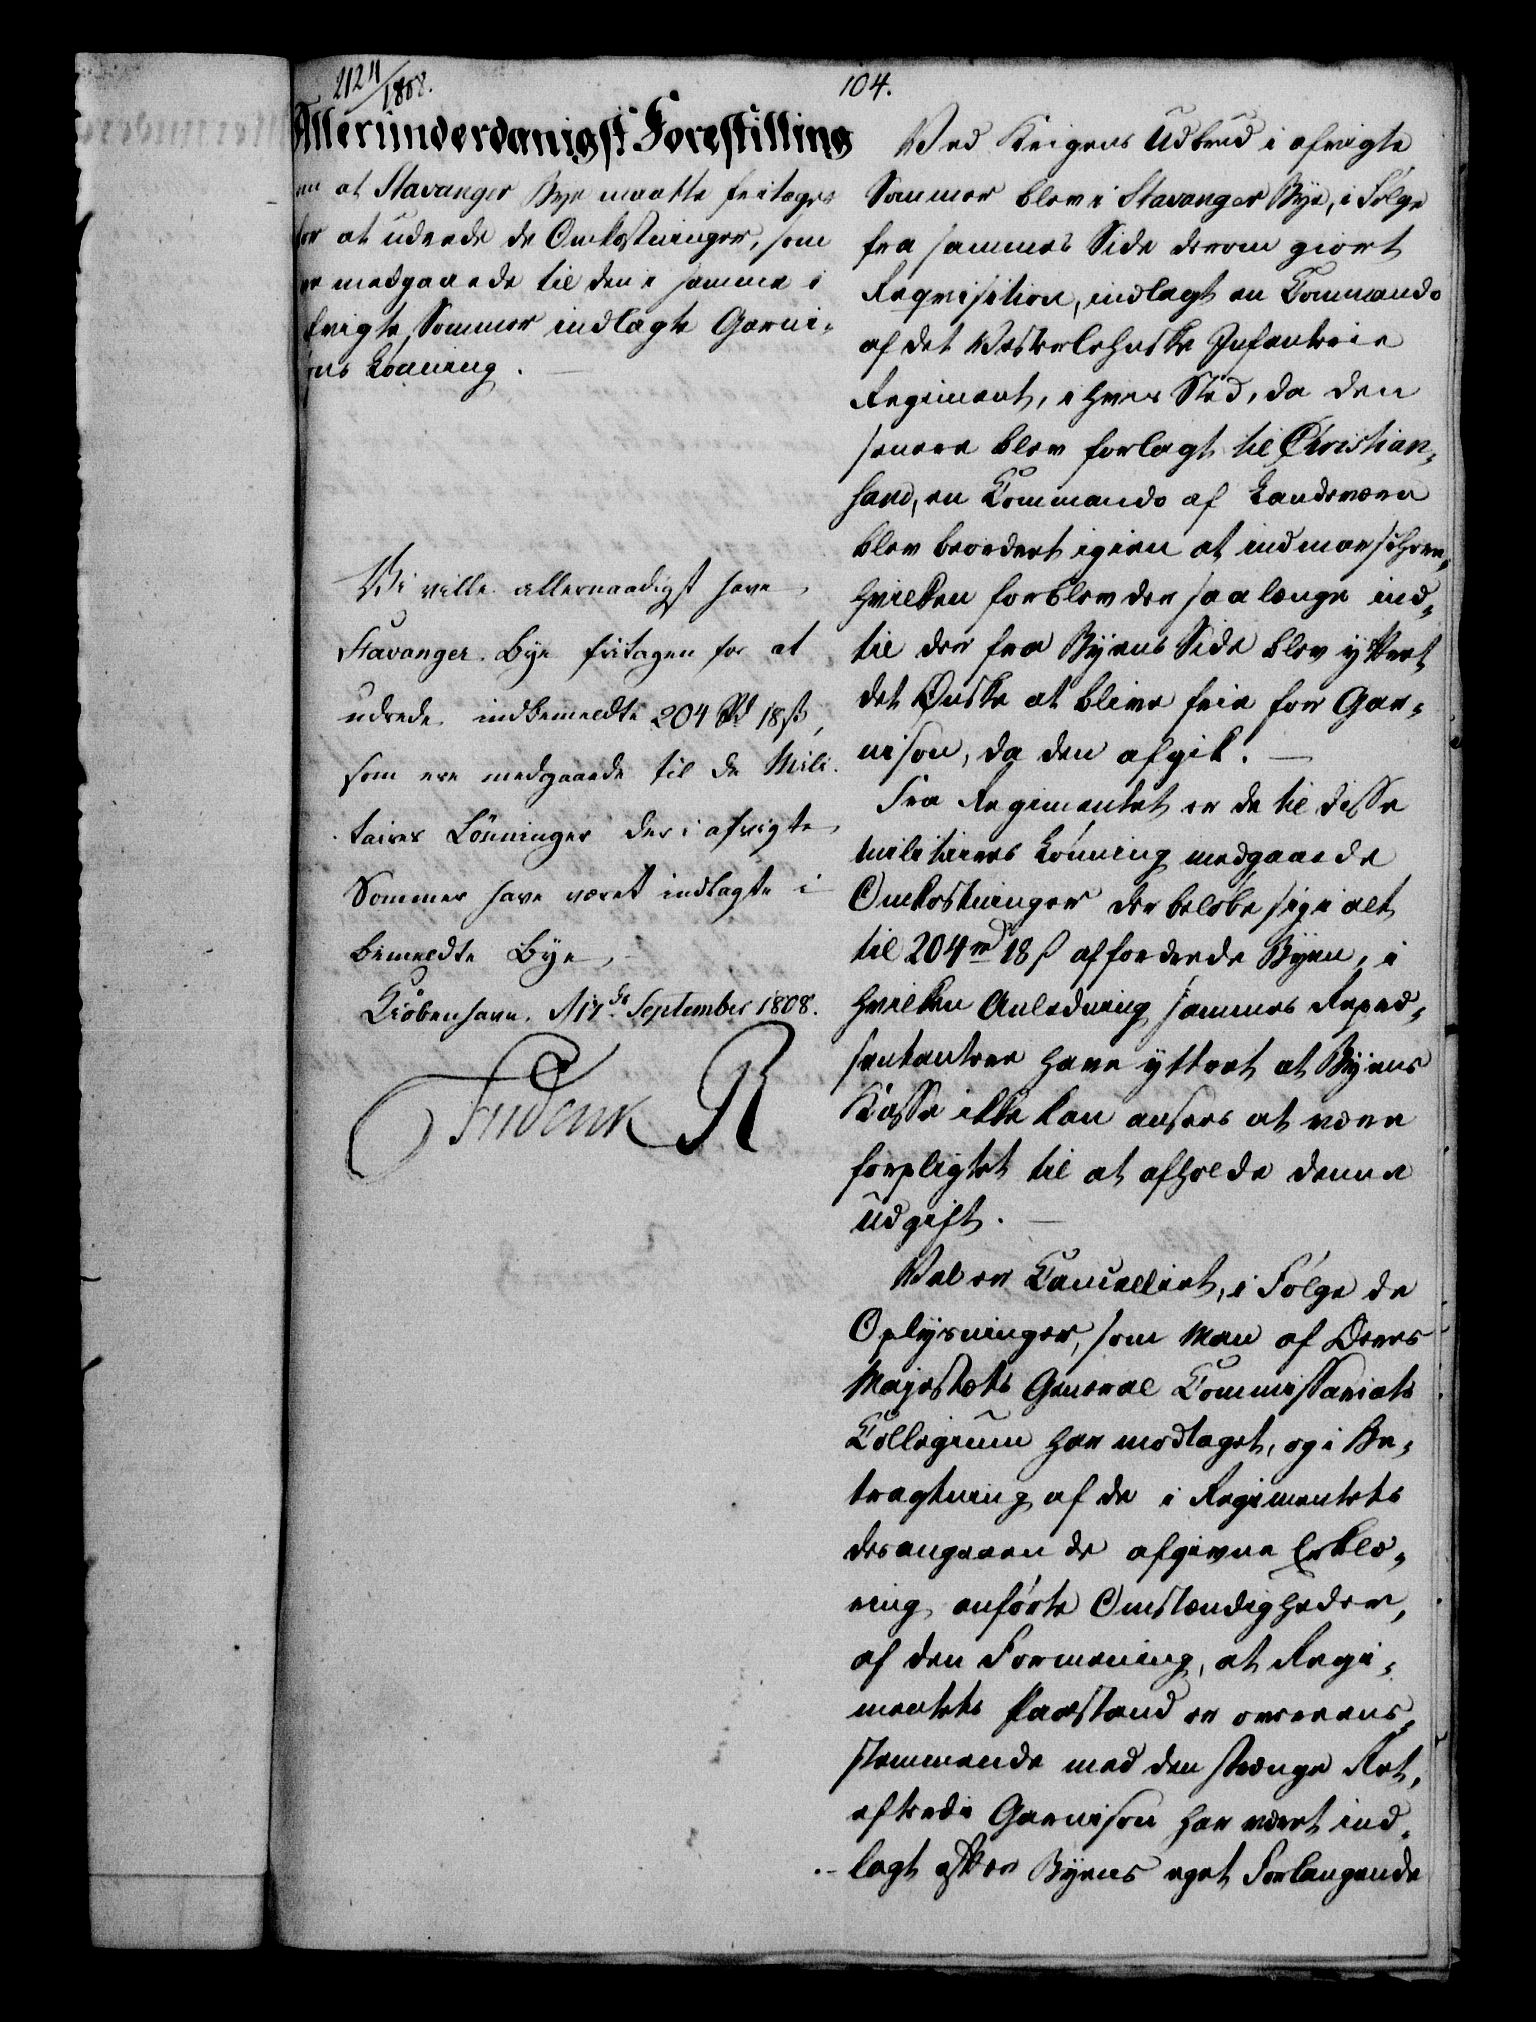 2124/1808.
104.
Allerunderdanigst Forestilling
om at Stavanger Bye maatte fritages
for at udrede de Omkostninger, som
ere medgaaede til den i samme i
afvigte Sommer indlagte Garni-
sons Lønning.
Vi ville allernaadigst have
Stavanger Bye fritagen for at
udrede indbemeldte 204 Rd 18 ß,
som ere medgaaede til de Mili-
taires Lønninger der i afvigte
Sommer have været indlagte i
bemeldte Bye.
Kiøbenhavn, d 17de September 1808.
Friderik R
Ved Krigens Udbrud i afvigte
Sommer blev i Stavanger Bye, i Følge
fra sammes Side derom giort
Reqvisition, indlagt en Commando
af det Vesterlehnske Infanterie
Regiment, i hvis Sted, da den
senere blev forlagt til Christian-
sand, en Commando af Landeværn
blev beordret igien at indmarschere,
hvilken forblev der saalænge ind-
til der fra Byens Side blev yttret
det Ønske at blive frie for Gar-
nison, da den afgik.
Fra Regimentet er de til disse
militaires Lønning medgaaede
Omkostninger der beløbe sig i alt
til 204 rd 18 ß affordrede Byen, i
hvilken Anledning sammes Repræ-
sentantere have yttret at Byens
Kasse ikke kan ansees at være
forpligtet til at afholde denne
Udgift.
Vel er Cancelliet, i Følge de
Oplysninger, som Man af Deres
Majestæts General Commissariats
Collegium har modtaget, og i Be-
tragtning af de i Regimentets
desangaaende afgivne Erklæ-
ring anførte Omstændigheder,
af den Formening, at Regi-
mentets Paastand er overeens-
stemmende med den strænge Ret,
efterdi Garnison har været ind-
lagt efter Byens eget Forlangende